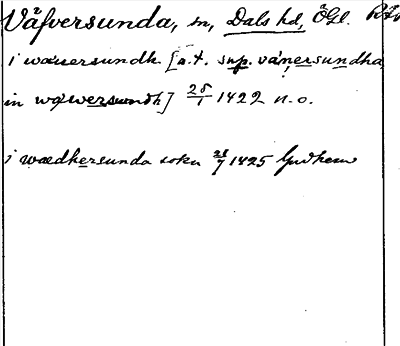 Väfversunda, sn, Dals hd, ÖGl.
i wæuersundh [a.t. sup. vänersundha,
in wäwersundh] 28/1 1422 n.o.
i wædhersunda sokn 28/7 1425 Gudhem